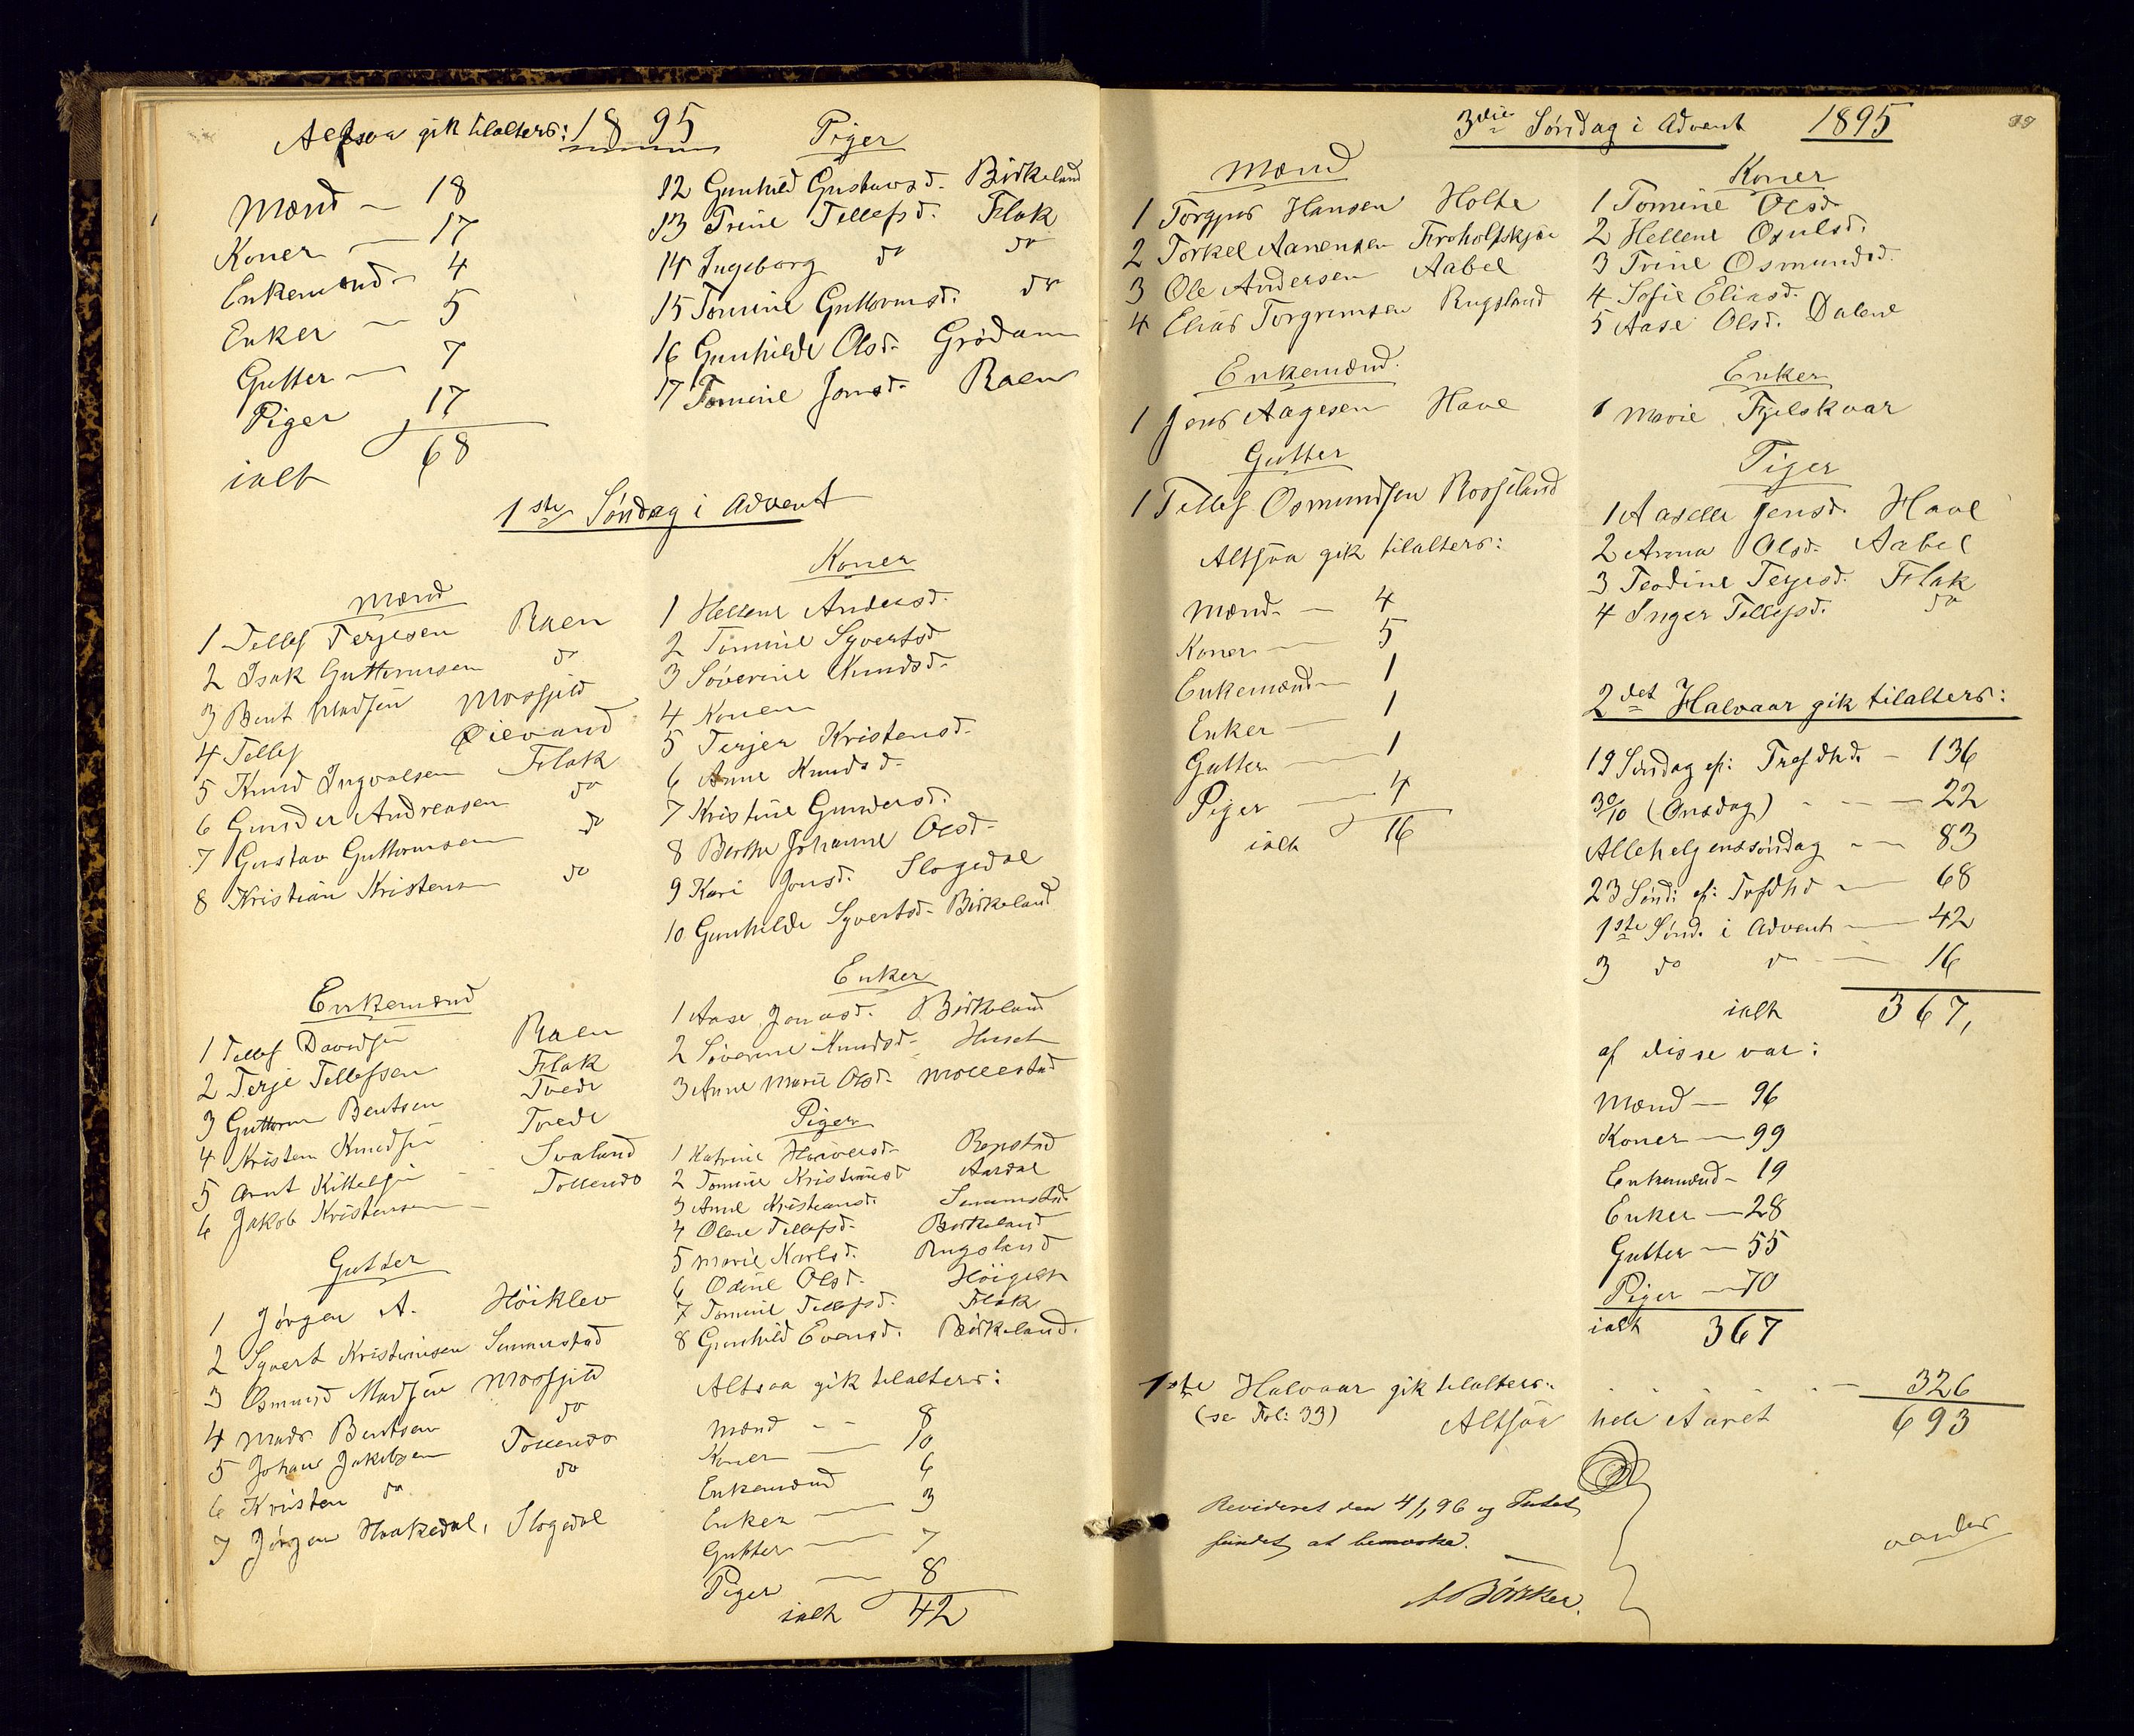 Altsaa gik tilalters: 1895
Mænd — 18
Koner — 17
Enkemænd — 4
Enker — 5
Gutter — 7
Piger 17
ialt 68
Piger
12 Gunhild Gustavsd. Birkeland
13 Trine Tellefsd. Flak
14 Ingeborg do do
15 Tomine Guttormsd. do
16 Gunhilde Olsd. Grødum
17 Tomine Jonsd. Raen
1ste Søndag i Advent
Mænd
1 Tellef Terjesen Raen
2 Isak Guttormsen do
3 Bent Madsen Mosfjeld
4 Tellef Øievand
5 Knud Ingvalsen Flak
6 Gunder Andreasen do
7 Gustav Guttormsen do
8 Kristian Kristensen do
Koner
1 Hellene Andersd.
2 Tomine Syvertsd
3 Søverine Knudsd.
4 Konen
5 Terjer Kristensd.
6 Anne Knudsd.
7 Kristine Gundersd.
8 Berthe Johanne Olsd.
9 Kari Jonsd. Slogedal
10 Gunhilde Syvertsd. Birkeland
Enkemænd
1 Tellef Davidsen Raen
2 Terje Tellefsen Flak
3 Guttorm Bentsen Tvede
4 Kristen Knudsen Tvede
5 Arnt Kittelsen Svaland
6 Jakob Kristensen Tollendo
Enker
1 Aase Jonasd. Birkeland
2 Søverine Knudsd.
3 Anne Marie Olsd. Mollestad
Piger
1 Katrine Repstad
2 Tomine Kristiansd Aardal
3 Anne Kristiansd. Senumstad
4 Olene Tellefsd. Birkeland
5 Marie Karlsd. Rugsland
6 Odine Olsd.
7 Tomine Tellefsd. Flak
8 Gunhild Evensd. Birkeland.
Gutter
1 Jørgen A. Höiklev
2 Syvert Kristiansen Senumstad
3 Osmund Madsen Mosfjeld
4 Mads Bentsen do
5 Johan Jakobsen Tollendo
6 Kristen do do
7 Jørgen Haakedal, Slogedal
Altsaa gik tilalters:
Mænd — 8
Koner — 10
Enkemænd 6
Enker — 3
Gutter — 7
Piger — 8
ialt 42
3die Søndag i Advent 1895
Mænd
1 Torgjus Hansen Holte
2 Torkel Aanensen
3 Ole Andersen Aabel
4 Elias Torgrimsen Rugsland
Koner
1 Tomine Olsd.
2 Hellene Osulsd.
3 Trine Osmundsd.
4 Sofie Eliasd.
5 Aase Olsd. Dalene
Enkemænd.
1 Jens Aagesen Have
Enker
1 Marie Fjelskaar
Gutter
1 Tellef Osmundsen Rosseland
Piger
1 Aaselle Jensd. Have
2 Anna Olsd. Aabel
3 Teodine Terjesd. Flak
4 Inger Tellefsd. do
Altsaa gik tilalters:
Mænd — 4
Koner — 5
Enkemænd — 1
Enker — 1
Gutter — 1
Piger — 4
ialt 16
2det Halvaar gik tilalters:
19 Søndag ef: Trefdhd. — 136
30/10 (Onsdag) — 22
Allehelgenssöndag — 83
23 Sönd: ef: Trfdhd — 68
1ste Sönd. i Advent — 42
3 do do — 16
ialt 367,
af disse var:
Mænd — 96
Koner — 99
Enkemænd — 19
Enker — 28
Gutter — 55
Piger — 70
ialt 367
1ste Halvaar gik tilalters: — 326
(se Fol: 33) Altsaa hele Aaret 693
Revideret den 4/1 96 og Intet
fundet at bemærke.
vander